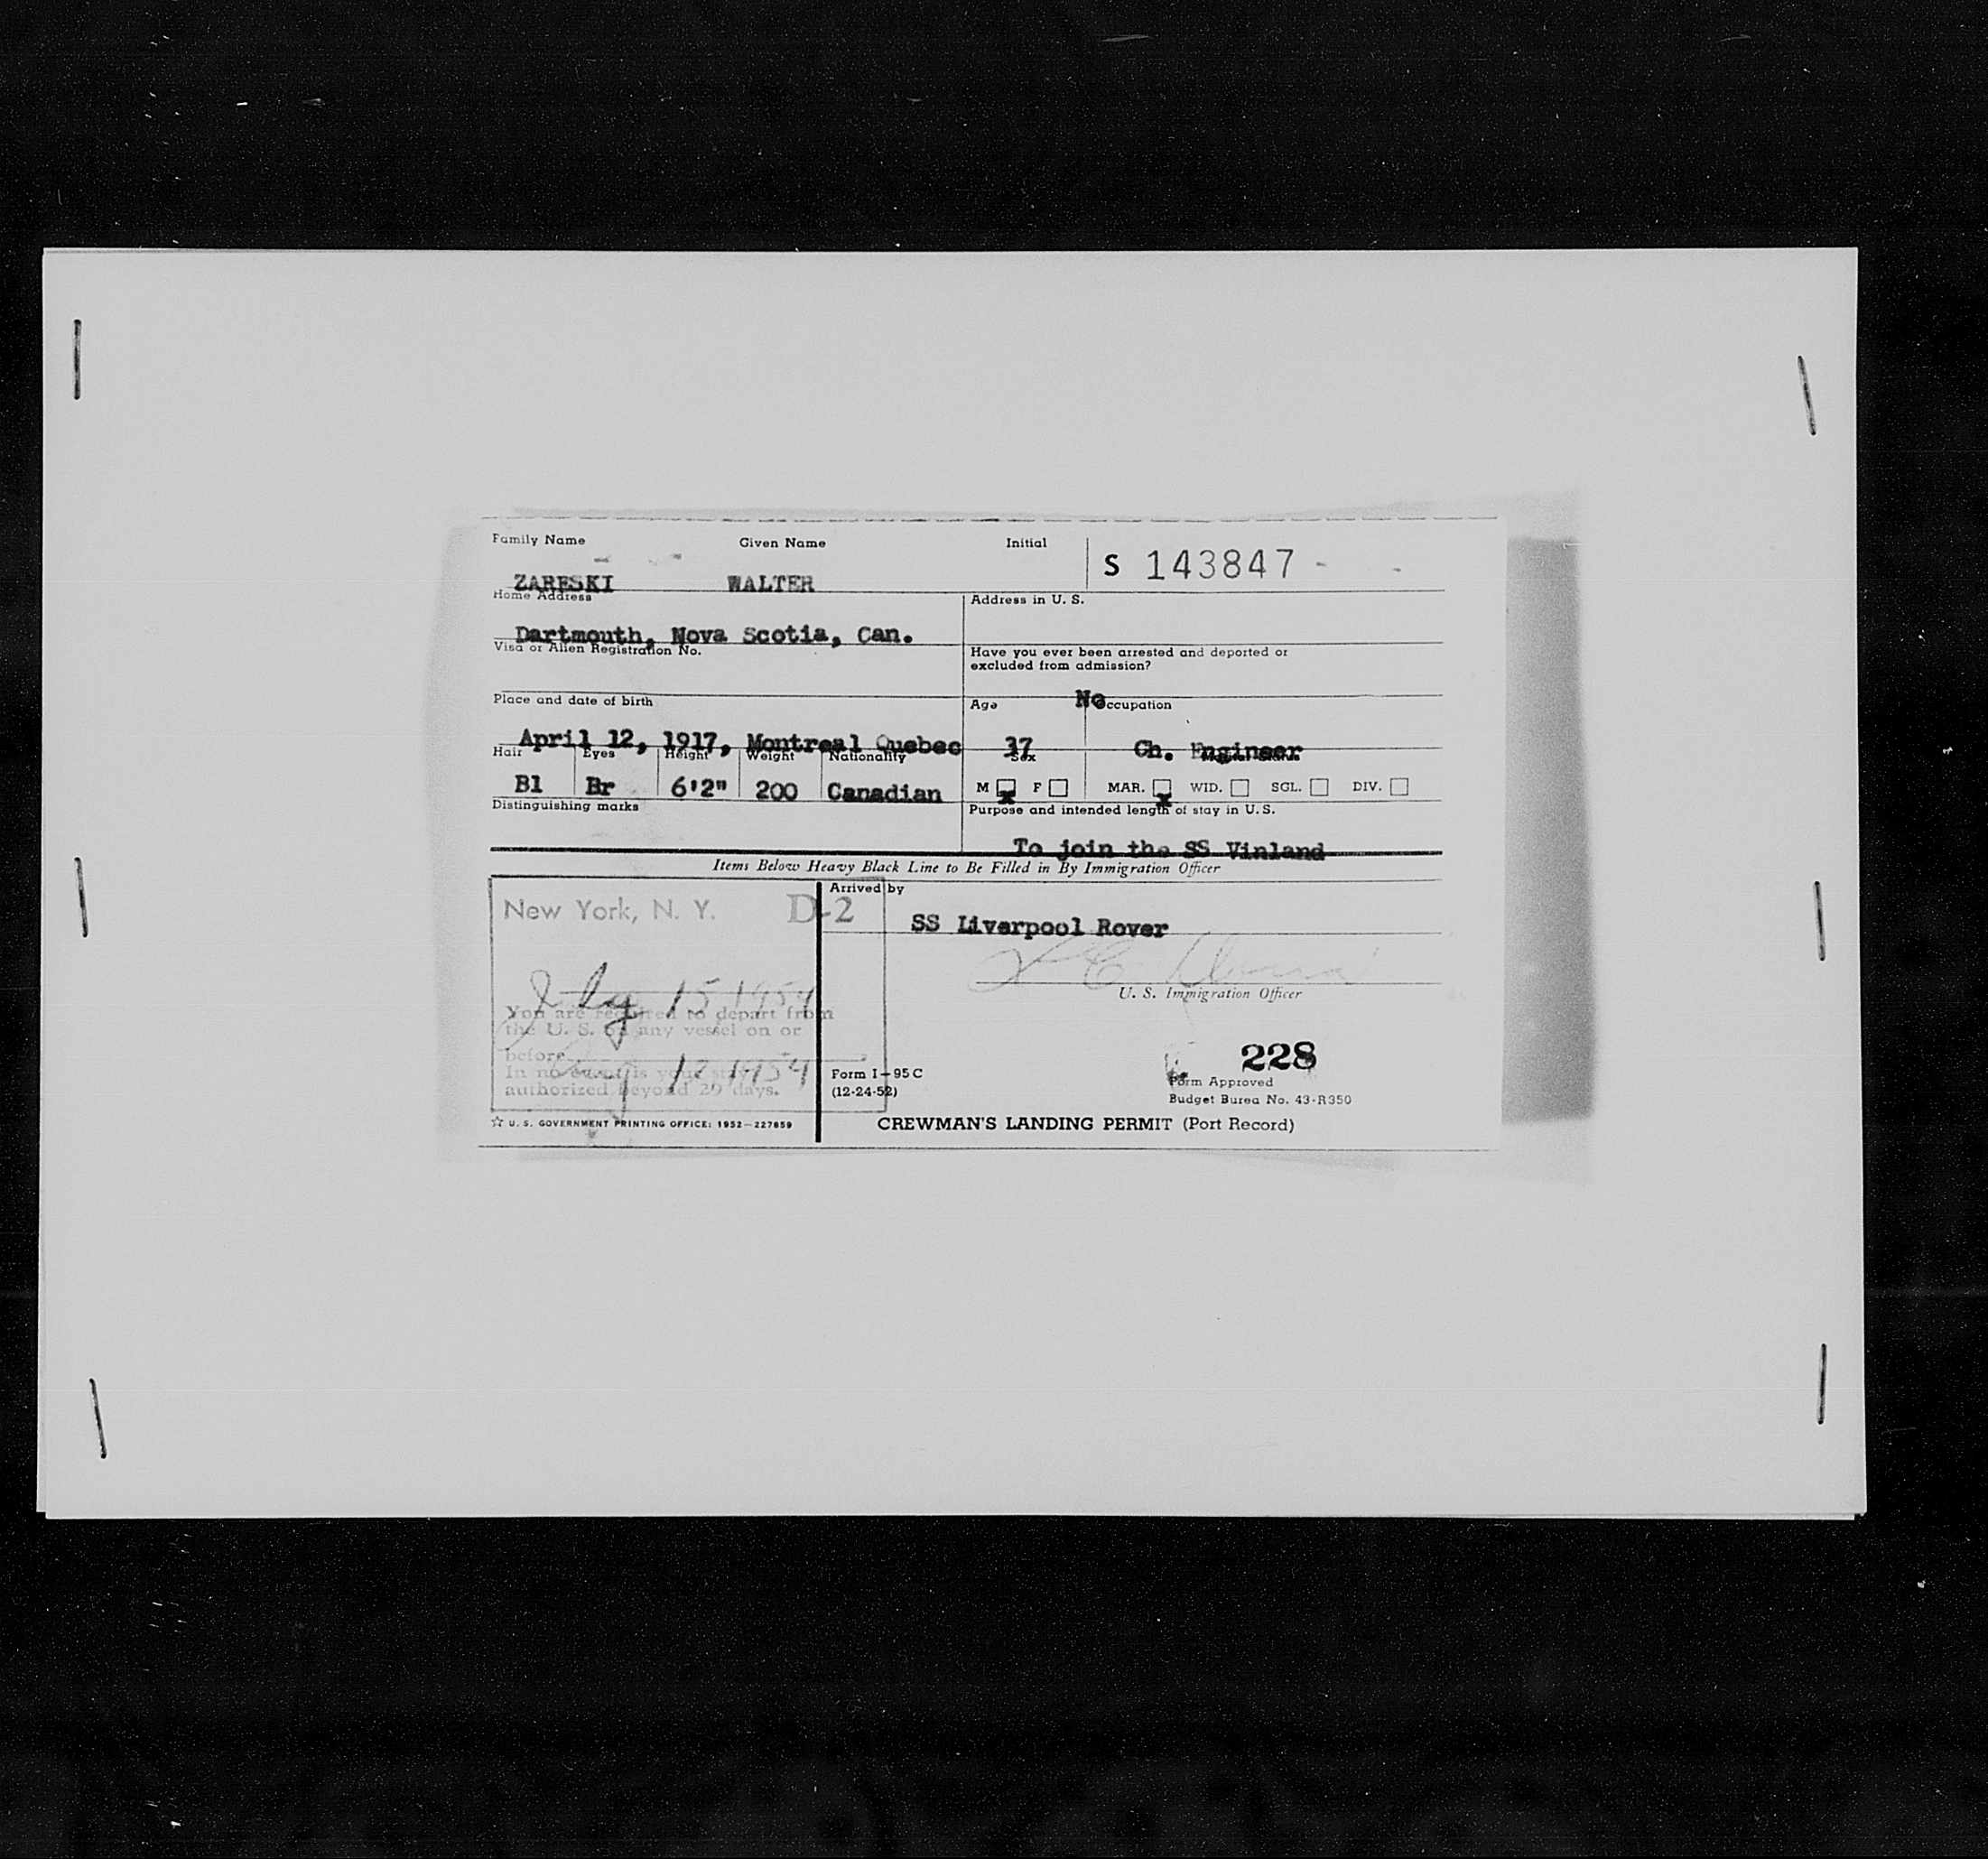 Family Name Given Name Initial S 143847
ZARESKI WALTER
Home Address Address in U. S.
Dartmouth, Nova Scotia, Can.
Visa or Alien Registration No. Have you ever been arrested and deported or
excluded from admission?
No
Place and date of birth Age Occupation
April 12, 1917, Montreal Quebec 37 Ch. Engineer
Hair Eyes Height Weight Nationality Sex Marital Status
Bl Br 6'2" 200 Canadian M F MAR. WID. SGL. DIV.
Distinguishing marks Purpose and intended length of stay in U.S.
To join the SS Vinland
Items Below Heavy Black Line to Be Filled in By Immigration Officer
New York, N. Y. D-2
July 15 1954
You are required to depart from
the U. S. on any vessel on or
before Aug 12 1954
In no event is your stay
authorized beyond 29 days.
☆ U. S. GOVERNMENT PRINTING OFFICE: 1952—227659
Arrived by
SS Liverpool Rover
U. S. Immigration Officer
228
Form I-95 C
(12-24-52)
Form Approved
Budget Burea No. 43-R350
CREWMAN'S LANDING PERMIT (Port Record)